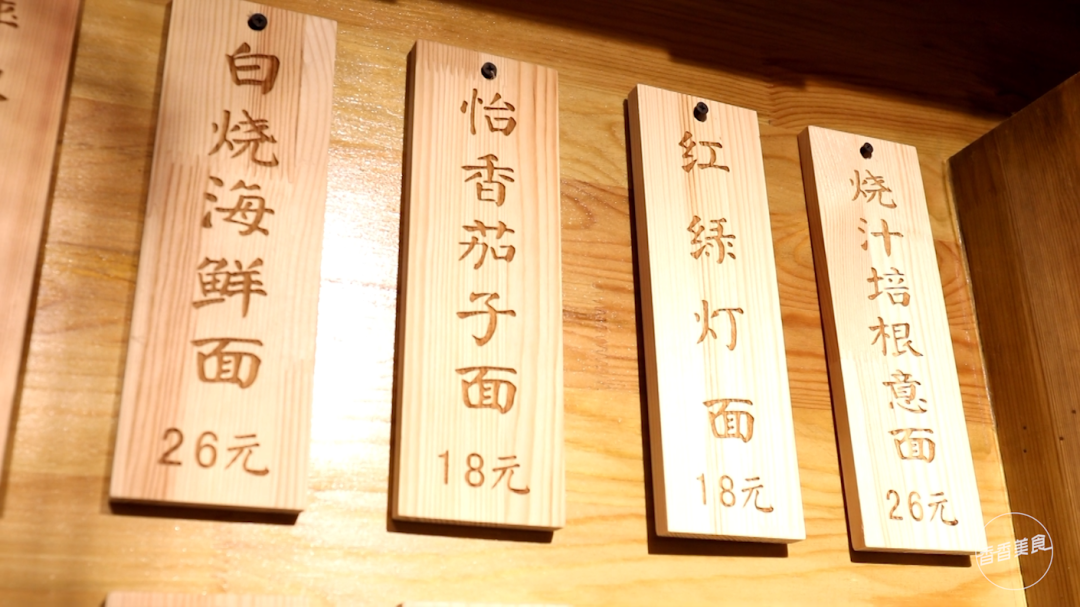 白烧海鲜面
26元
怡香茄子面
18元
红绿灯面
18元
烧汁培根意面
26元
香香美食